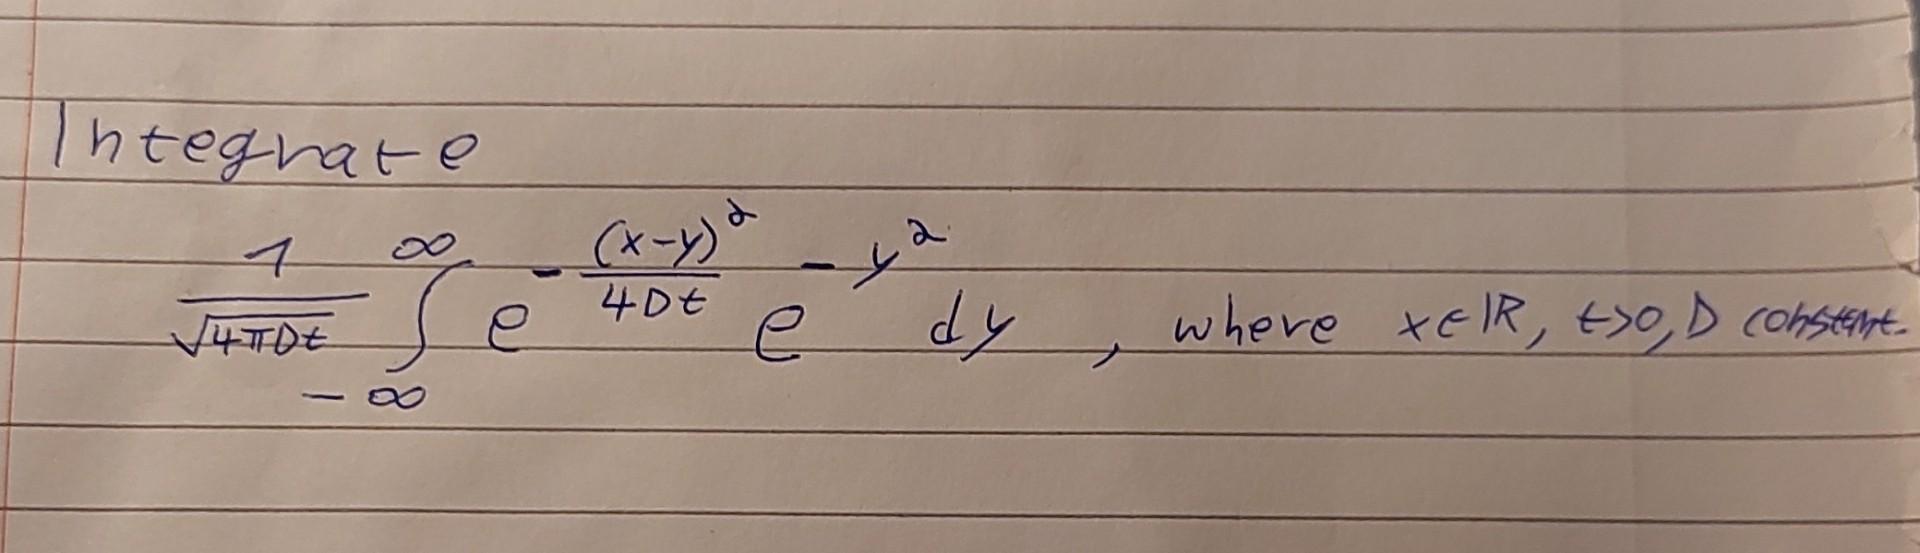 Integrate
1/√(4πDt) ∫_{-∞}^{∞} e^{-(x-y)²/(4Dt)} e^{-y²} dy, where x∈ℝ, t>0, D constant.